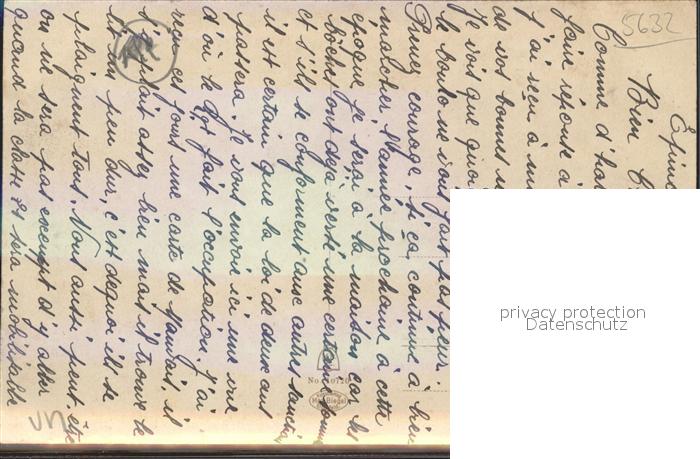 5632
Epin
Bien C
Comme d'hab
faire réponse à
j'ai reçu à mi
de vos bonnes n
Je vois que quoi
le boulo ne vous fait pas peur.
Prenez courage, si ça continue à bien
marcher l'année prochaine à cette
époque je serai à la maison car les
boches ont déjà versé une certaine somme
et s'ils se conforment aux autres
il est certain que la loi de deux ans
passera. Je vous envoie ici une vue
d'où le Rgt fait l'occupation. J'ai
reçu ces jours une carte de il
s'y plaît assez bien mais il trouve le
un peu dur, c'est de quoi ils se
plaignent tous. Nous aussi peut-être
on ne sera pas exempt d'y aller
quand la classe 21 sera mobilisable
No.
privacy protection
Datenschutz